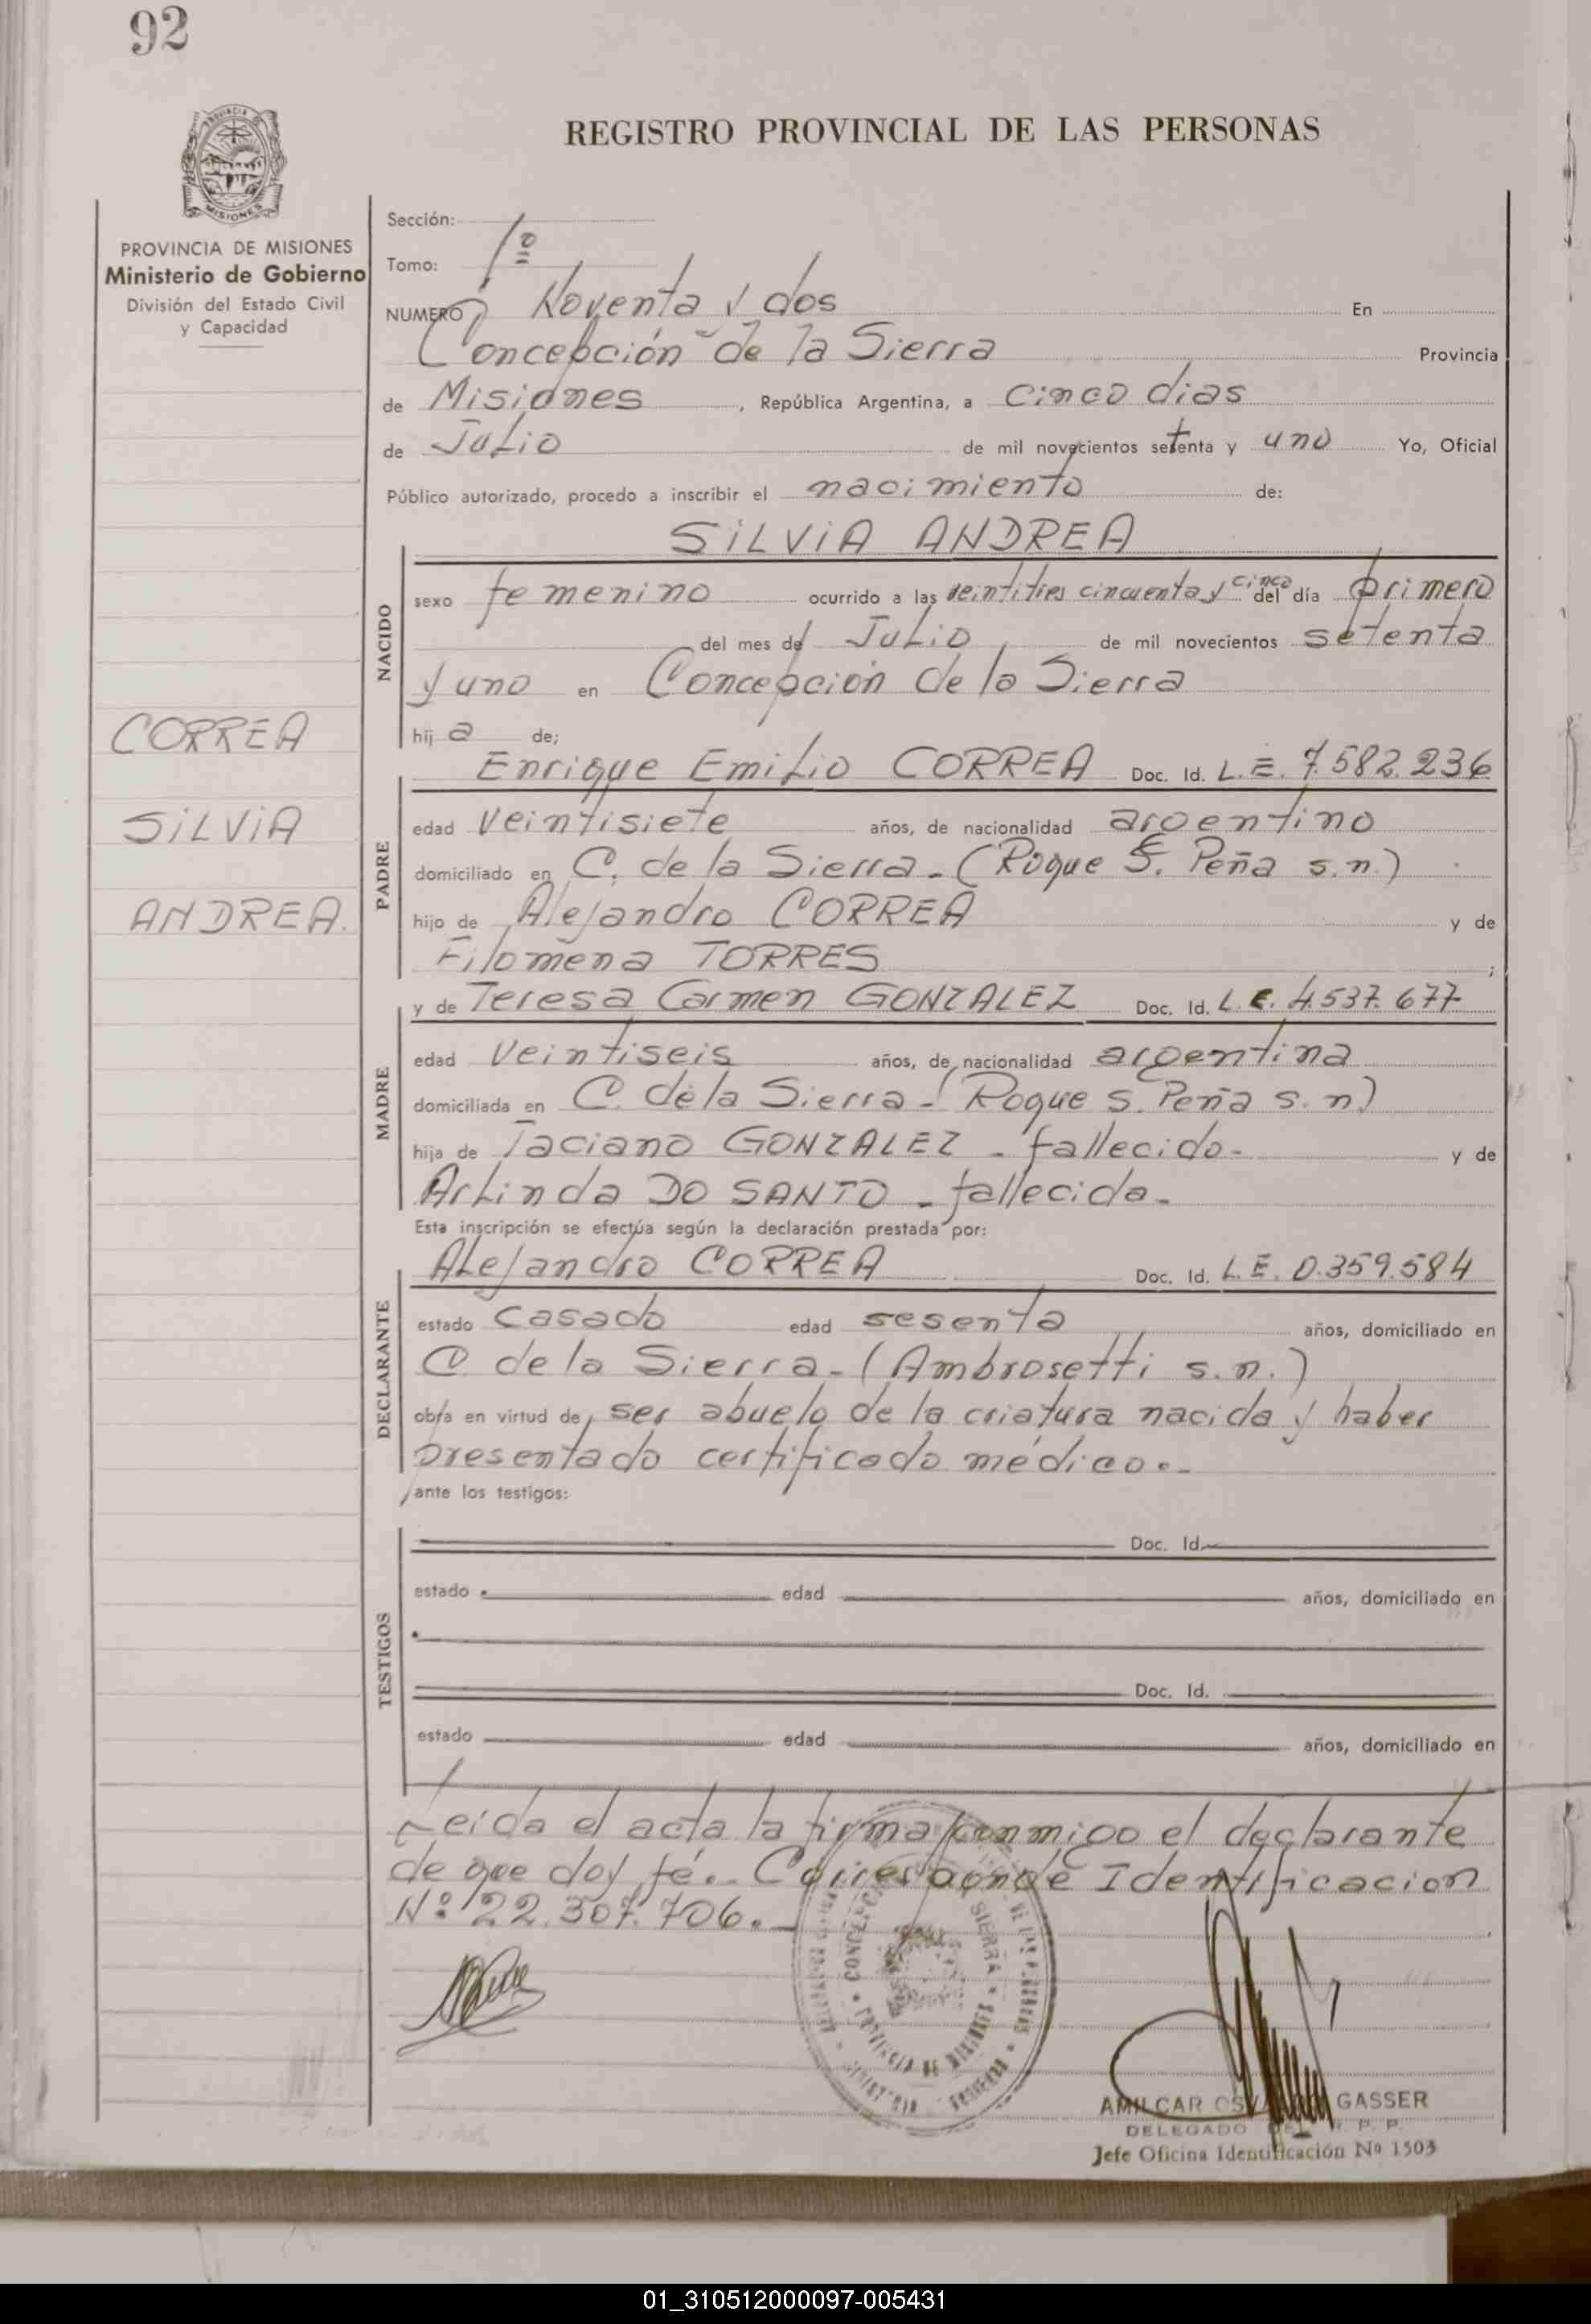 92
REGISTRO PROVINCIAL DE LAS PERSONAS
PROVINCIA DE MISIONES
Ministerio de Gobierno
División del Estado Civil
y Capacidad
Sección:
Tomo: 1º
NUMERO Noventa y dos En
Concepción de la Sierra Provincia
de Misiones, República Argentina, a cinco dias
de Julio de mil novecientos setenta y uno Yo, Oficial
Público autorizado, procedo a inscribir el nacimiento de:
SILVIA ANDREA
NACIDO
sexo femenino ocurrido a las veintitres cincuenta y cinco del día primero
del mes de Julio de mil novecientos setenta
y uno en Concepción de la Sierra
hija de;
CORREA
SILVIA
ANDREA.
PADRE
Enrique Emilio CORREA Doc. Id. L.E. 7.582.236
edad veintisiete años, de nacionalidad argentino
domiciliado en C. de la Sierra - (Roque S. Peña s.n.)
hijo de Alejandro CORREA y de
Filomena TORRES ;
MADRE
y de Teresa Carmen GONZALEZ Doc. Id. L.E. 4.537.677
edad veintiseis años, de nacionalidad argentina
domiciliada en C. de la Sierra - (Roque S. Peña s.n)
hija de Taciano GONZALEZ - fallecido - y de
Arlinda DO SANTO - fallecida -
Esta inscripción se efectúa según la declaración prestada por:
DECLARANTE
Alejandro CORREA Doc. Id. L.E. 0.359.584
estado casado edad sesenta años, domiciliado en
C de la Sierra - (Ambrosetti s.n.)
obra en virtud de ser abuelo de la criatura nacida y haber
presentado certificado médico.-
ante los testigos:
TESTIGOS
Doc. Id.
estado edad años, domiciliado en
Doc. Id.
estado edad años, domiciliado en
Leida el acta la firma conmigo el declarante
de que doy fé.. Corresponde Identificacion
Nº 22.307.706.-
CONCEPCION SIERRA
PROVINCIA DE MISIONES
AMILCAR GASSER
DELEGADO P. P.
Jefe Oficina Identificación Nº 1503
01_310512000097-005431